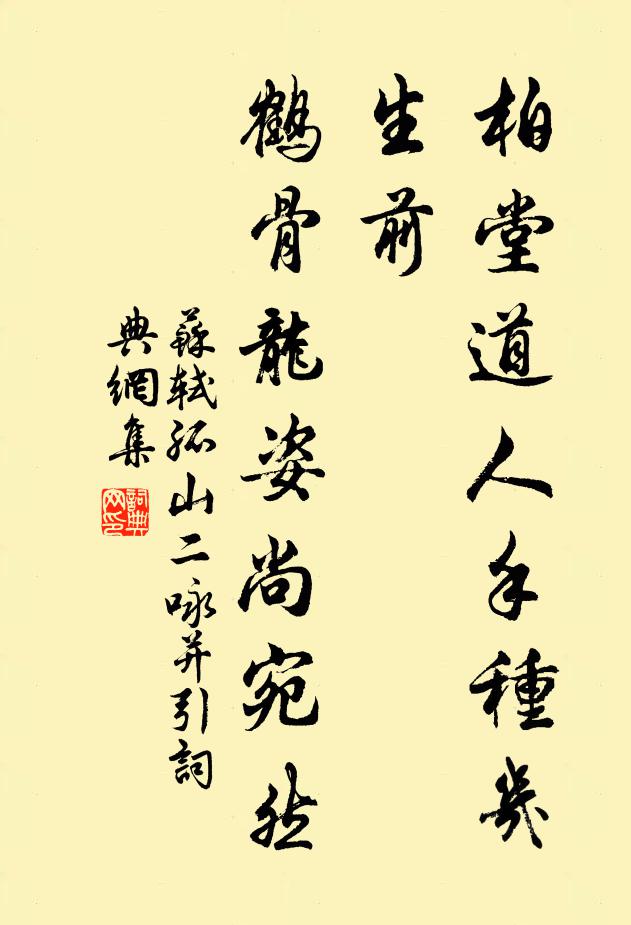 柏堂道人手種幾
生前
鶴骨龍姿尚宛然
蘇軾孤山二咏并引詞
典網集
詞典
网印